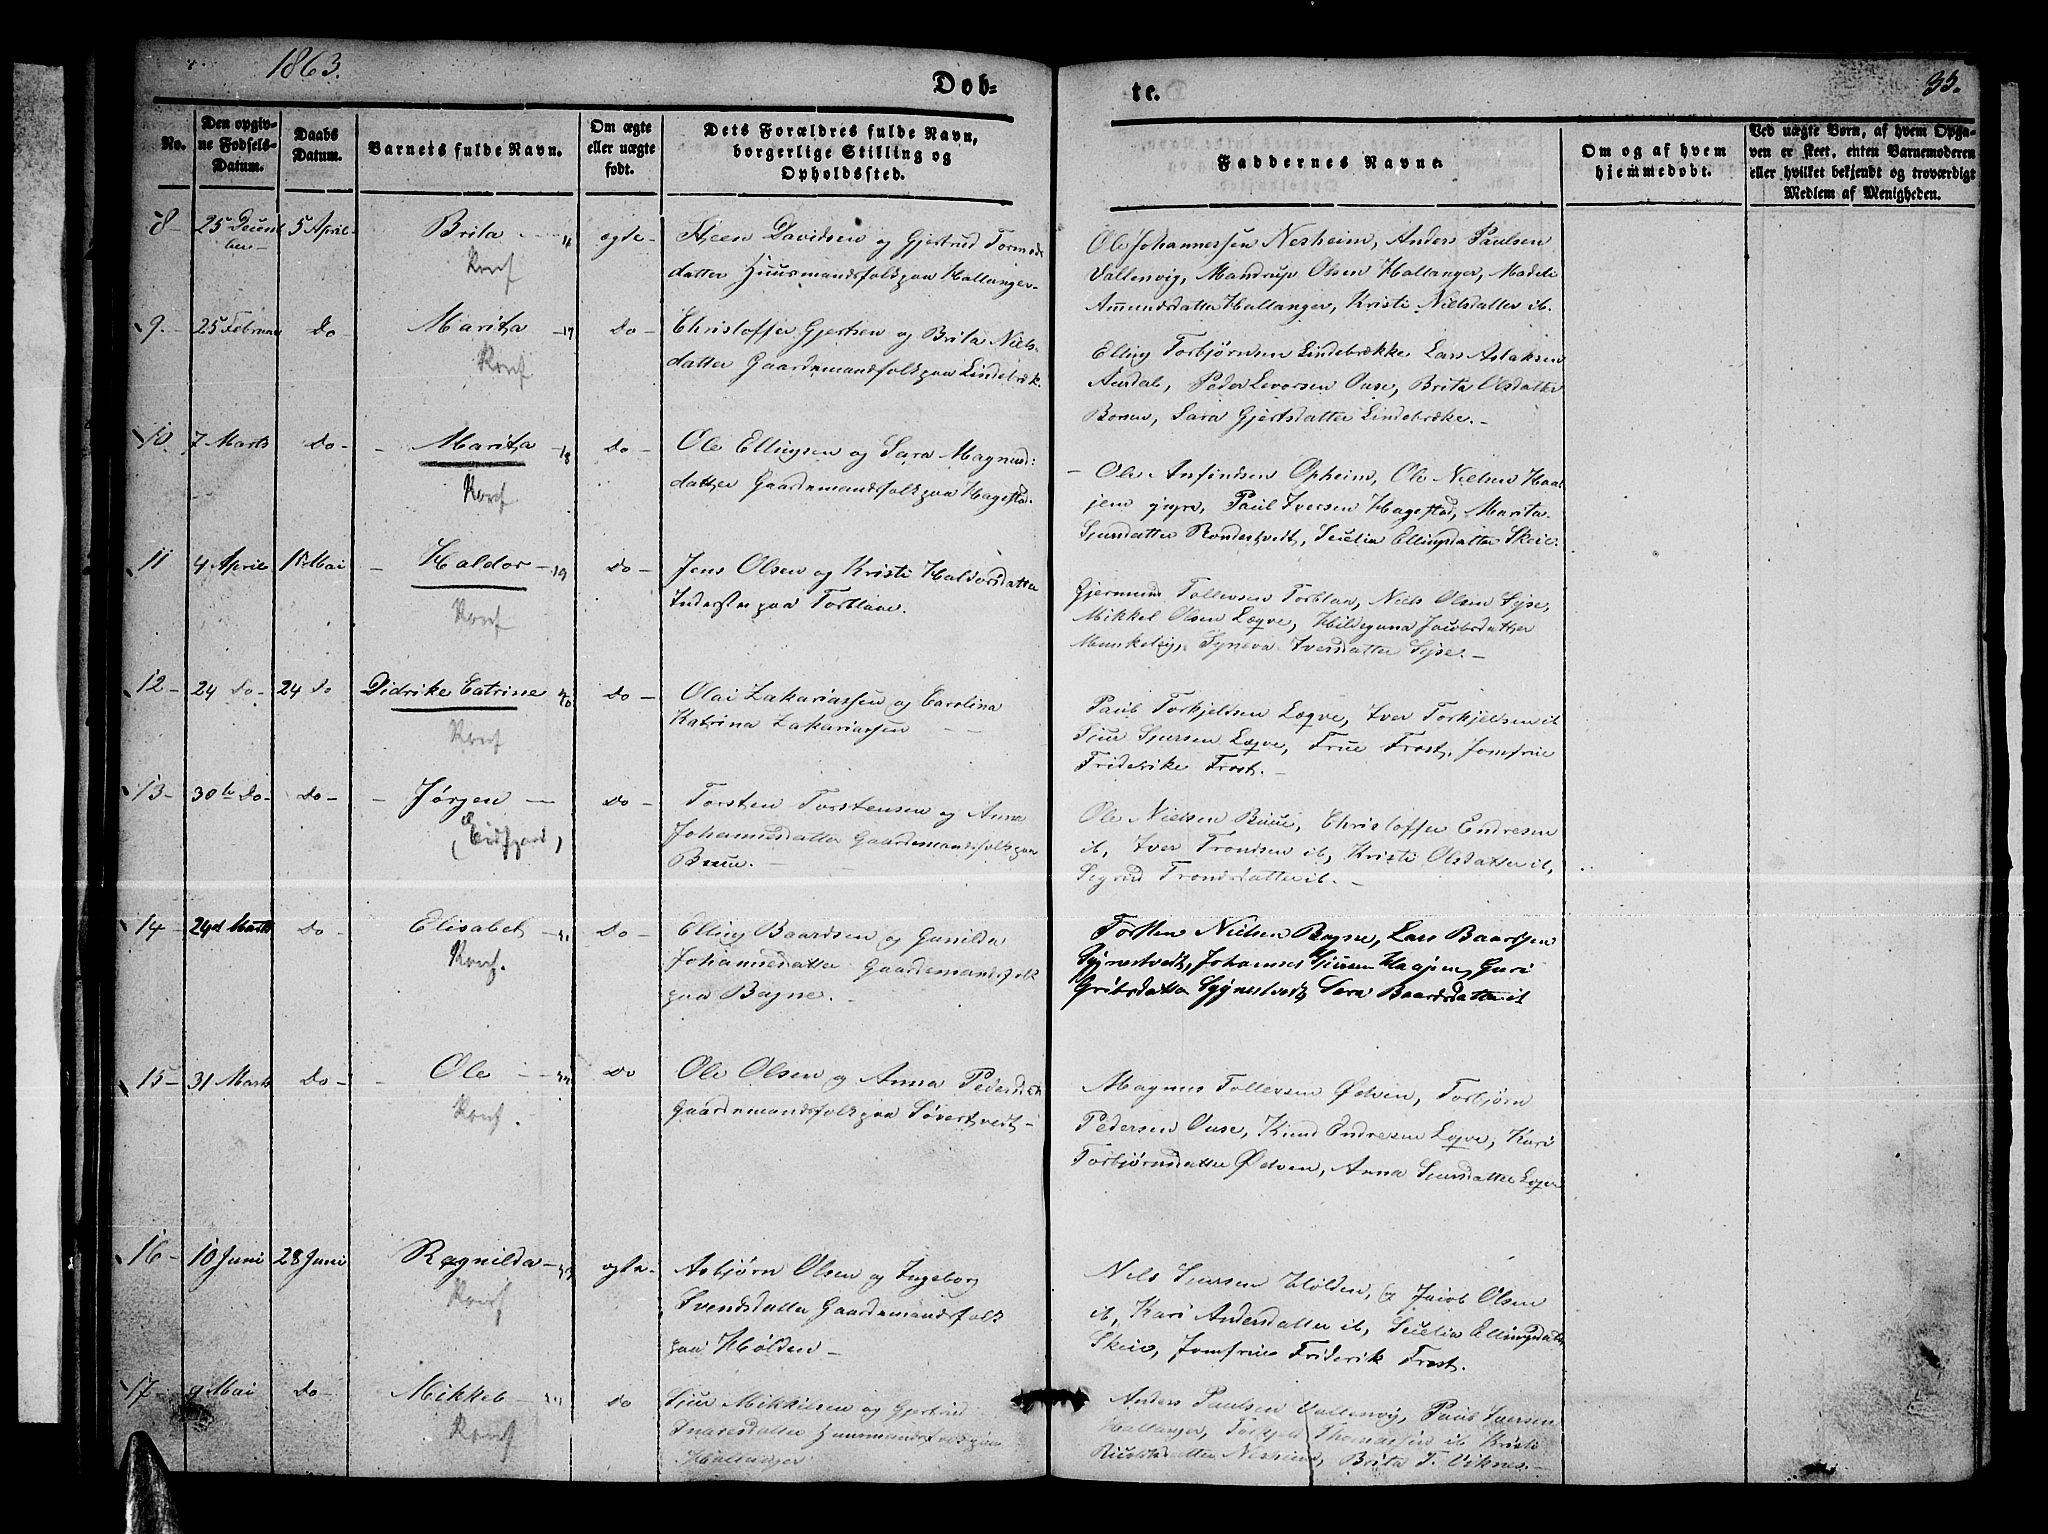 1863.
Døb-
te.
35.
No.
Den opgiv-
ne Fødsels-
Datum.
Daabs
Datum.
Barnets fulde Navn.
Om ægte
eller uægte
født.
Dets Forældres fulde Navn,
borgerlige Stilling og
Opholdssted.
Faddernes Navne.
Om og af hvem
hjemmedøbt.
Ved uægte Børn, af hvem Opga-
ven er skeet, enten Barnemoderen
eller hvilket bekjendt og troværdigt
Medlem af Menigheden.
8 - 25 Decem 5 April - Brita - 16 ægte - Steen Davidsen og Gjertrud Tormods
ber - datter Huusmandsfolk paa Hallanger -
Konf
Ole Johannessen Nesheim, Anders Paulsen
Vallenvig, Mandrup Olsen Hallanger, Madele
Amundsdatter Hallanger, Kristi Nielsdatter ib.
9. 25 Februar Do Marita - 17 Do - Christoffer Gjertsen og Brita Niels-
datter Gaardemandsfolk paa Lindebræk.
Konf
Elling Torbjørnsen Lindebrække Lars Aslaksen
Aasdal, Peder Levorsen Ouse, Brita Olsdatter
Borsen, Sara Gjertsdatter Lindebrække. -
10. 7 Marts Do - - Marita - 18 Do - Ole Ellingsen og Sara Magnus-
datter Gaardemandsfolk paa Hagestad.
Konf
- Ole Anfindsen Opheim, Ole Nielsen Haa-
Paul Iversen Hagestad, Marita
Sjursdatter Rondestvedt, Secelia Ellingsdatter Skeie.
11 4 April 1 Mai - Haldor - 19 Do - Jens Olsen og Kristi Haldorsdatter
Inderster paa Torblaae.
Konf
Gjermund Tollevsen Torblaa, Niels Olsen Syse,
Mikkel Olsen Lægve, Hildeguna Jacobsdatter
Syneva Iversdatter Syse. -
12 - 24 Do - 24 Do Didrike Catrine 20 Do - Olai Zakariassen og Carolina
Katrina Zakariassen - -
Konf
Paul Torkjeldsen Lægve, Iver Torkjeldsen ib
Sjur Sjursen Lægve, Frue Frost, Jomfrue
Friderike Frost. -
13 - 30te Do - Do - - Jørgen - Do - Torsten Torstensen og Anna
(Eidfjord) Johannesdatter Gaardemandsfolk paa
Buue. -
Ole Nielsen Buue, Christoffer Endresen
ib, Iver Trondsen ib, Kristi Olsdatter ib,
Sigrid Trondsdatter ib. -
14 - 24de Marts Do - Elisabet - 21 Do - Elling Baardsen og Gunilda
Konf. Johannesdatter Gaardemandsfolk
paa Bagne. -
Torsten Nielsen Bagne, Lars Baardsen
Syjnestvedt, Johannes Sjursen Haajem, Guri
Gribsdatter Syjnestvedt Sara Baardsdatter ib
15 - 31 Marts Do - - Ole - 22 Do Ole Olsen og Anna Pedersdatt
Gaardemandsfolk paa Søvestvedt -
Konf.
Magnus Tollevsen Ødven, Torbjørn
Pedersen Ouse, Knud Endresen Lægve, Kari
Torbjørnsdatter Ødven, Anna Sjursdatter Lægve
16 - 10 Juni 28 Juni Ragnilda - 23 ægte - Asbjørn Olsen og Ingeborg
Konf Svendsdatter Gaardemandsfolk
paa Hølden -
Nels Sjursen Hølden, og Jacob Olsen
ib, Kari Andersdatter ib, Secelia Ellingsdatter
Skeie, Jomfrue Friderik Frost.
17 - 9 Mai Do - Mikkel - Do Sjur Mikkelsen og Gjertrud
Konf Ivarsdatter Huusmandsfolk paa
Hallanger
Anders Paulsen Vallenvig, Paul Iversen
Hallanger, Torkjel Thomassen ib Kristi
Nesheim, Brita T. Viknes. -